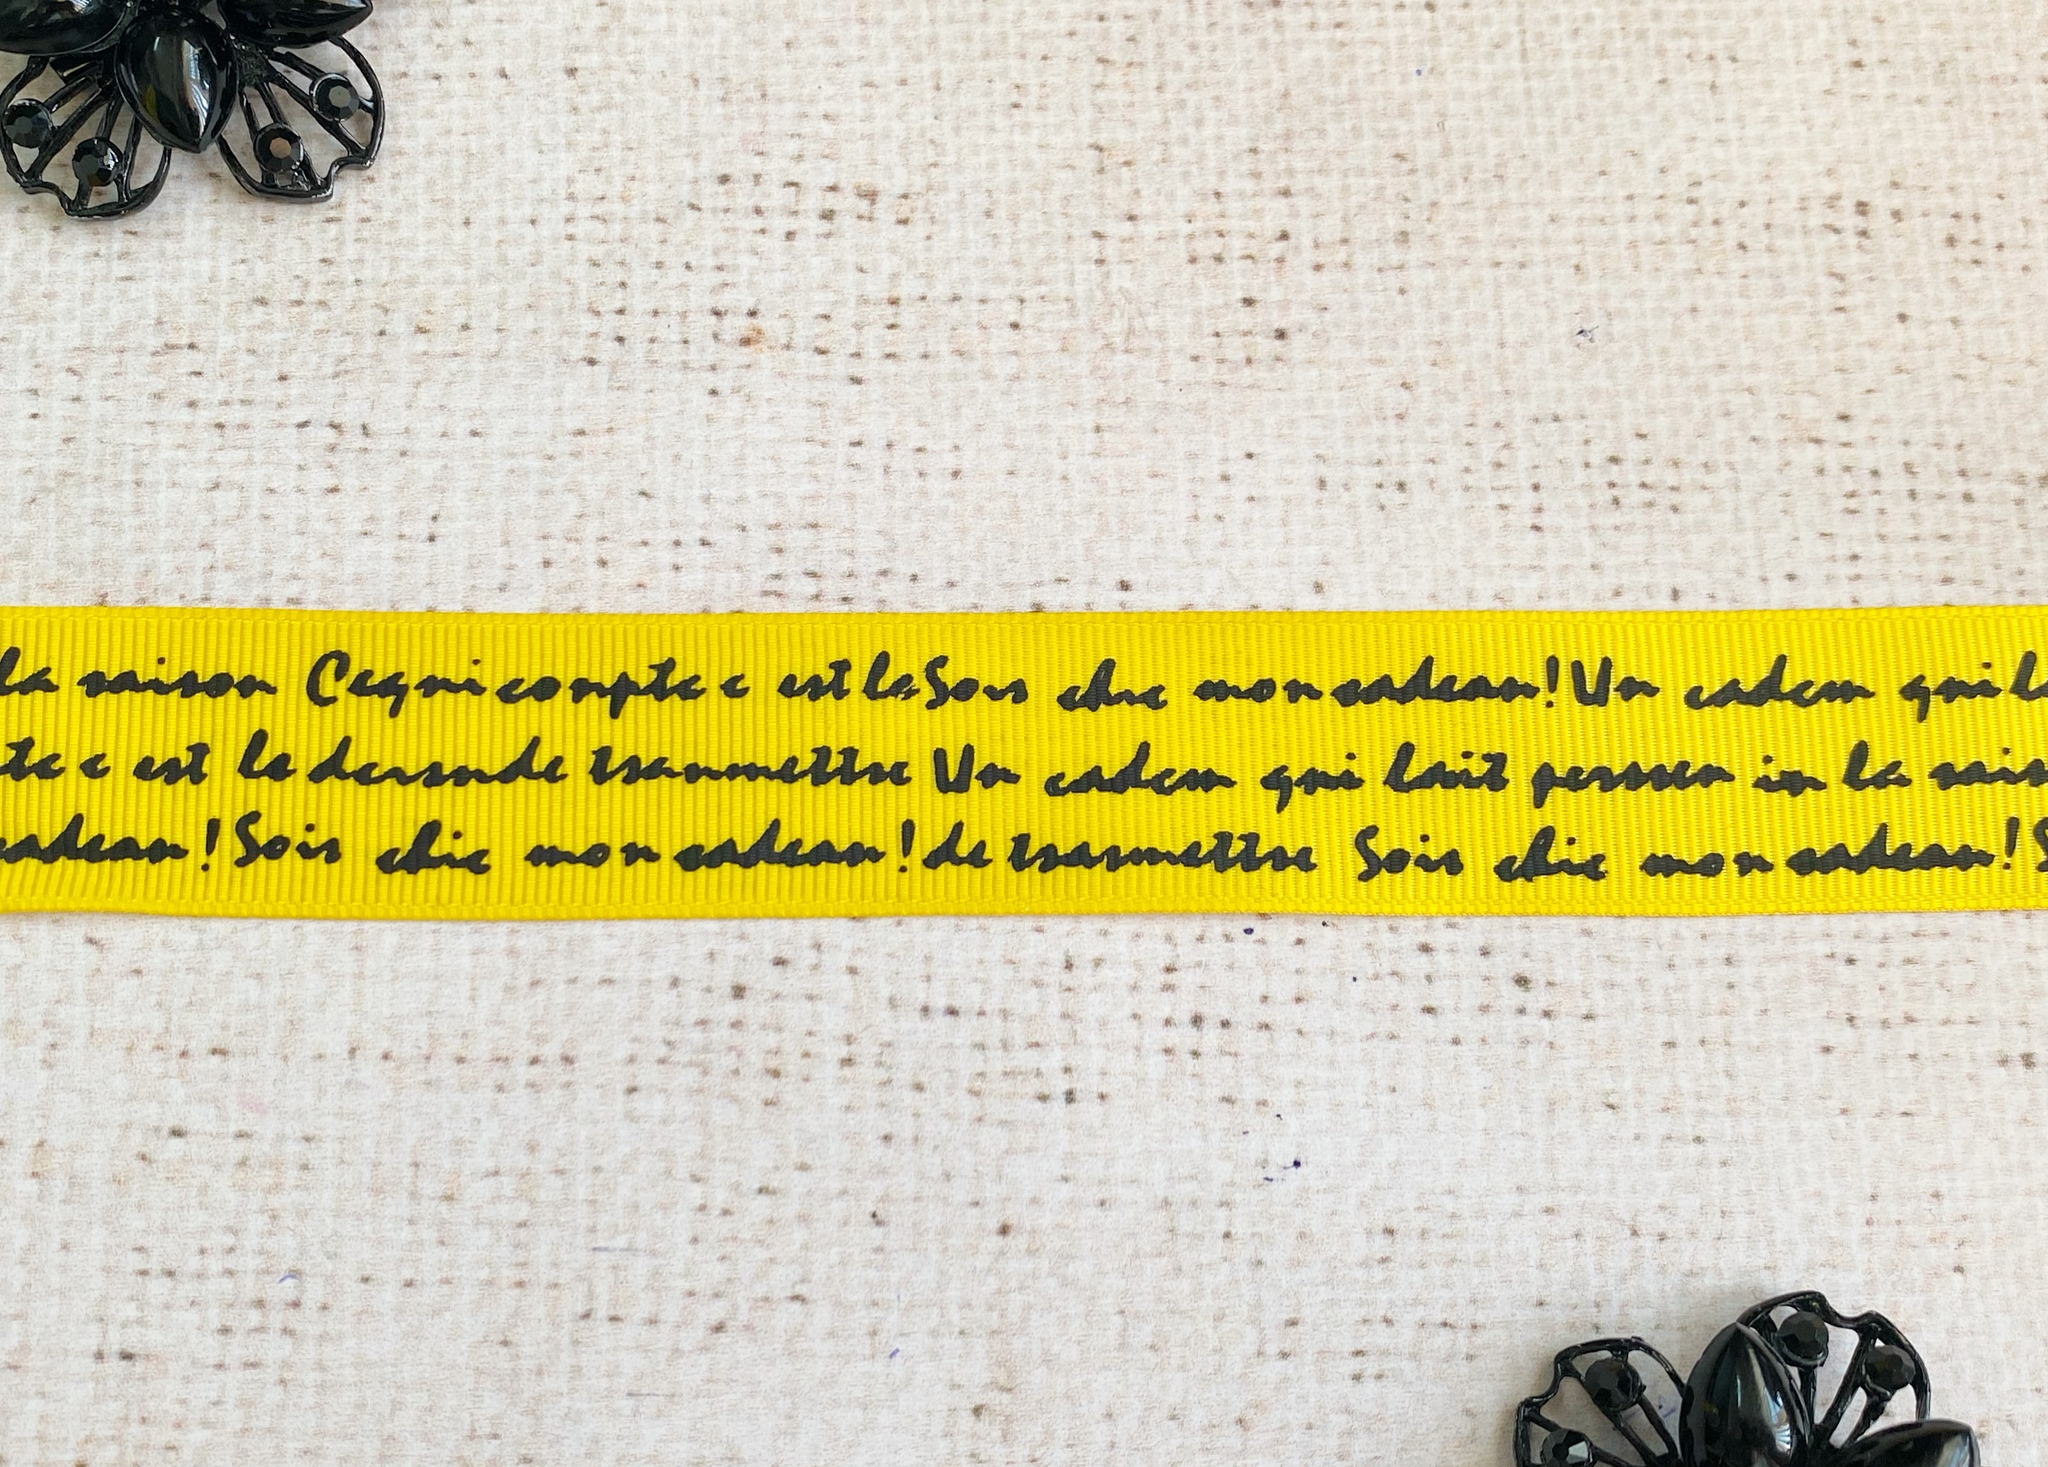 la raison Ce qui compte c est la Sois chic mon cadeau! Un cadeau qui la
te c est la demande transmettre Un cadeau qui lait persser in la rais
cadeau! Sois chic mon cadeau! de transmettre Sois chic mon cadeau! S